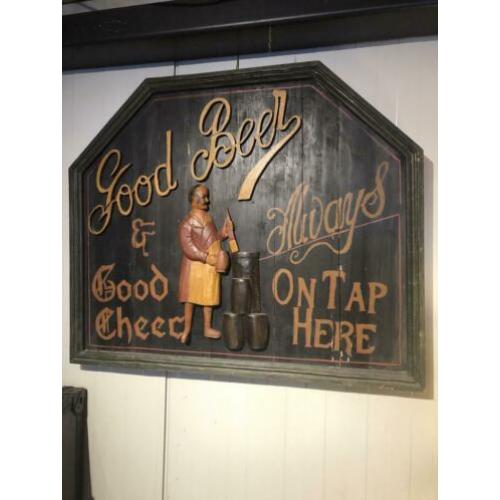 Good Beer
&
Good
Cheer
Always
ON TAP
HERE